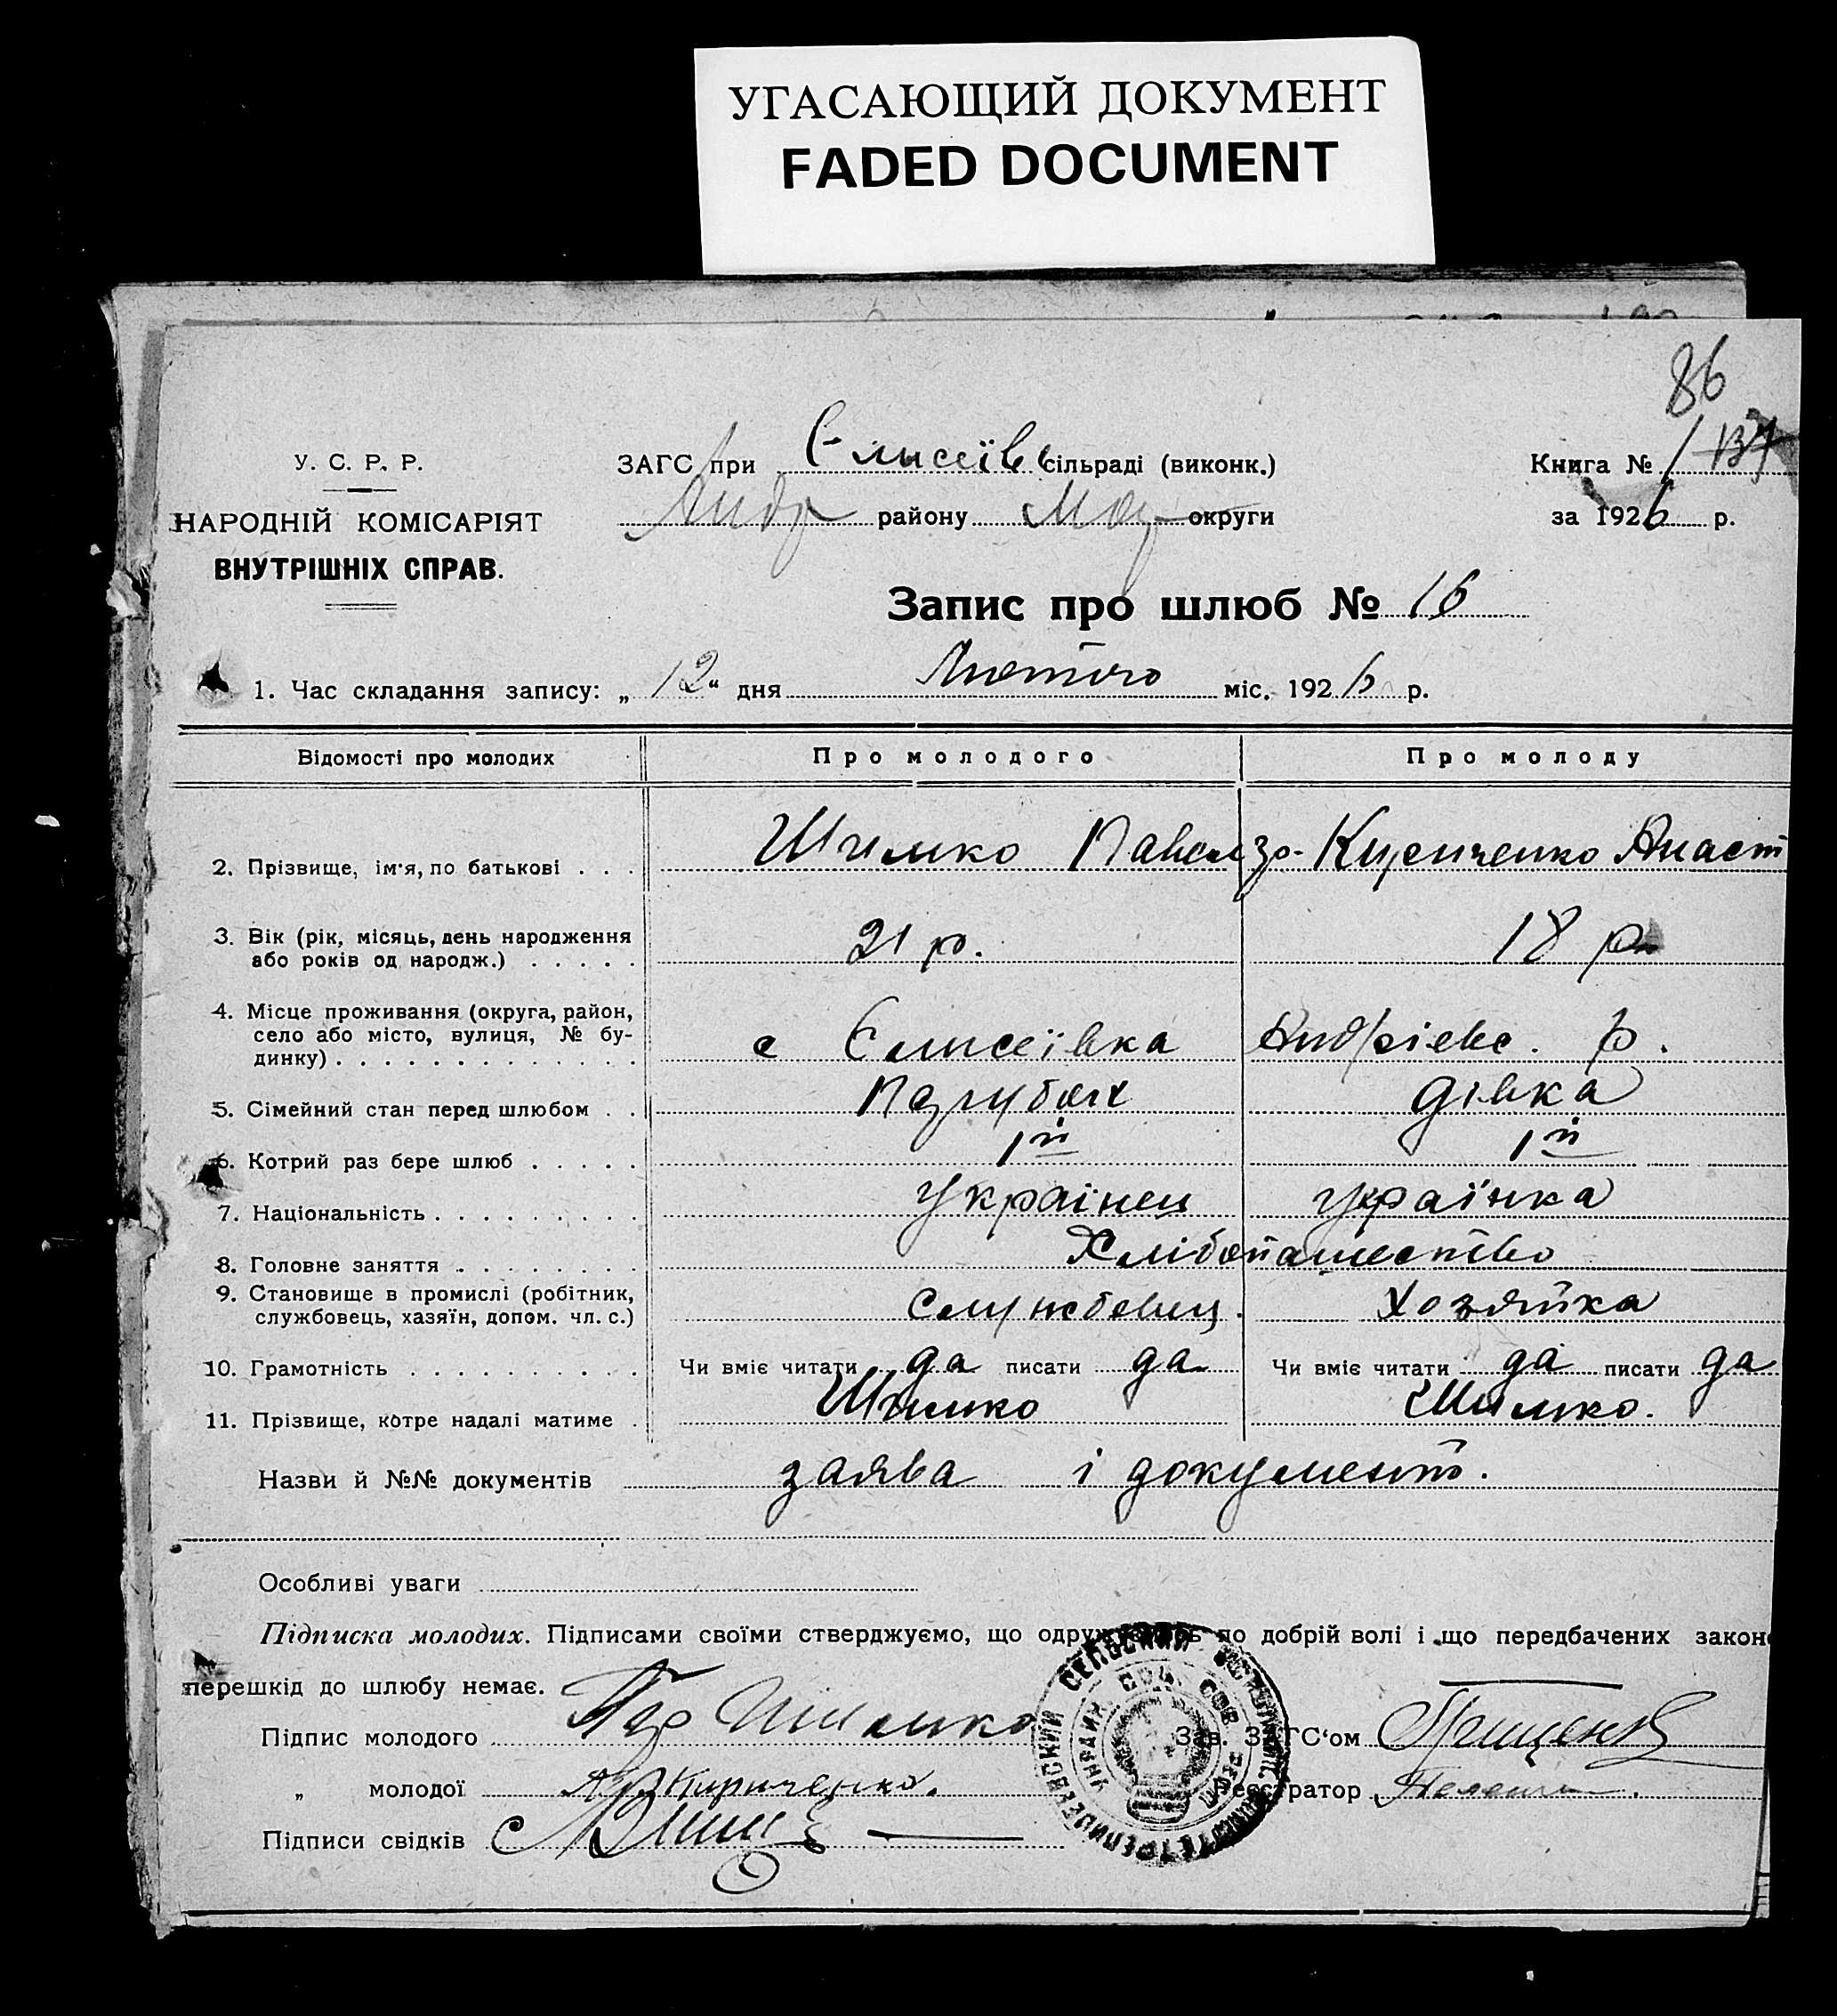 УГАСАЮЩИЙ ДОКУМЕНТ
FADED DOCUMENT
86
У. С. Р. Р.
НАРОДНІЙ КОМІСАРІЯТ
ВНУТРІШНІХ СПРАВ.
ЗАГС при Єлисеївс сільраді (виконк.)
Андр району округи
Книга № 1 137
за 1926 р.
Запис про шлюб № 16
1. Час складання запису: „ 12 “ дня Лютого міс. 1926 р.
Відомості про молодих Про молодого Про молоду
2. Прізвище, ім'я, по батькові . . . Шимко Павел Анаст
3. Вік (рік, місяць, день народження
або років од народж.) . . . . . 21 р. 18 р
4. Місце проживання (округа, район,
село або місто, вулиця, № бу-
динку) . . . . . . . . . . . . . с Єлисеївка Андрієвс. р.
5. Сімейний стан перед шлюбом . . Парубок дівка
6. Котрий раз бере шлюб . . . . . 1й 1й
7. Національність . . . . . . . . . українец украінка
8. Головне заняття . . . . . . . . Хліботашество
9. Становище в промислі (робітник,
службовець, хазяїн, допом. чл. с.) службовец. Хозяйка
10. Грамотність . . . . . . . . . . Чи вміє читати да писати да Чи вміє читати да писати да
11. Прізвище, котре надалі матиме . Шимко Шимко.
Назви й №№ документів заява і документ.
Особливі уваги
Підписка молодих. Підписами своїми стверджуємо, що по добрій волі і що передбачених закон
перешкід до шлюбу немає.
Підпис молодого Шимко Зав. ЗАГС'ом
„ молодої Кириченко. Реєстратор
Підписи свідків